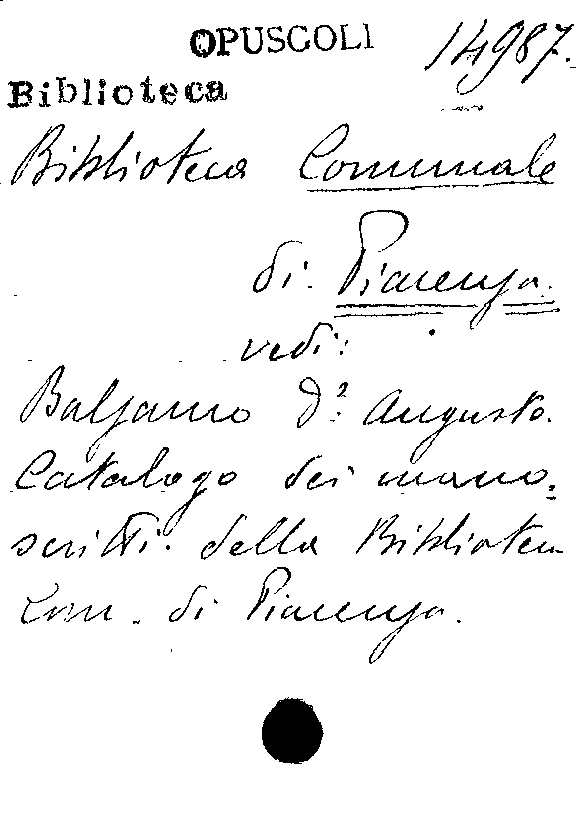 OPUSCOLI 14987.
Biblioteca
Biblioteca Comunale
di Piacenza.
vedi:
Balsamo Dr. Augusto.
Catalogo dei mano=
scritti della Biblioteca
Com. di Piacenza.